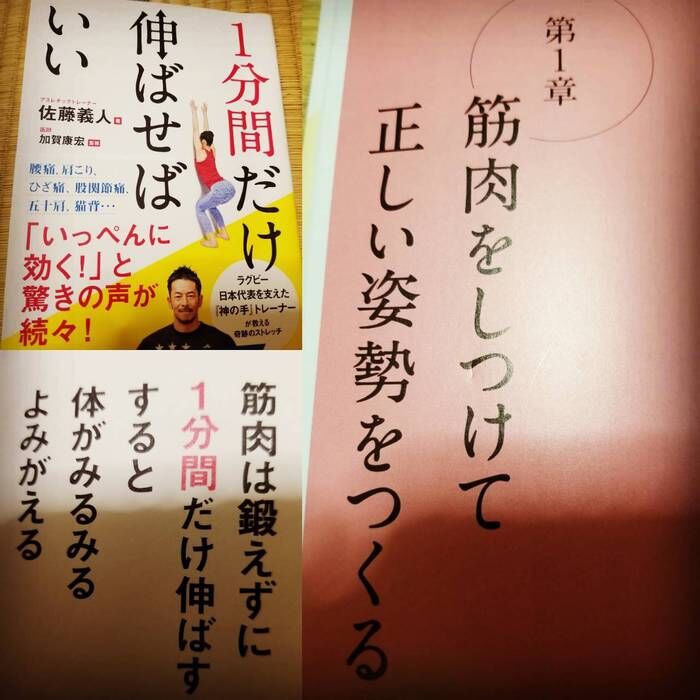 1分間だけ
伸ばせば
いい
アスレチックトレーナー
佐藤義人 著
医師
加賀康宏 監修
腰痛、肩こり、
ひざ痛、股関節痛、
五十肩、猫背…
「いっぺんに
効く!」と
驚きの声が
続々!
ラグビー
日本代表を支えた
『神の手』トレーナー
が教える
奇跡のストレッチ
筋肉は鍛えずに
1分間だけ伸ばす
すると
体がみるみる
よみがえる
第1章
筋肉をしつけて
正しい姿勢をつくる